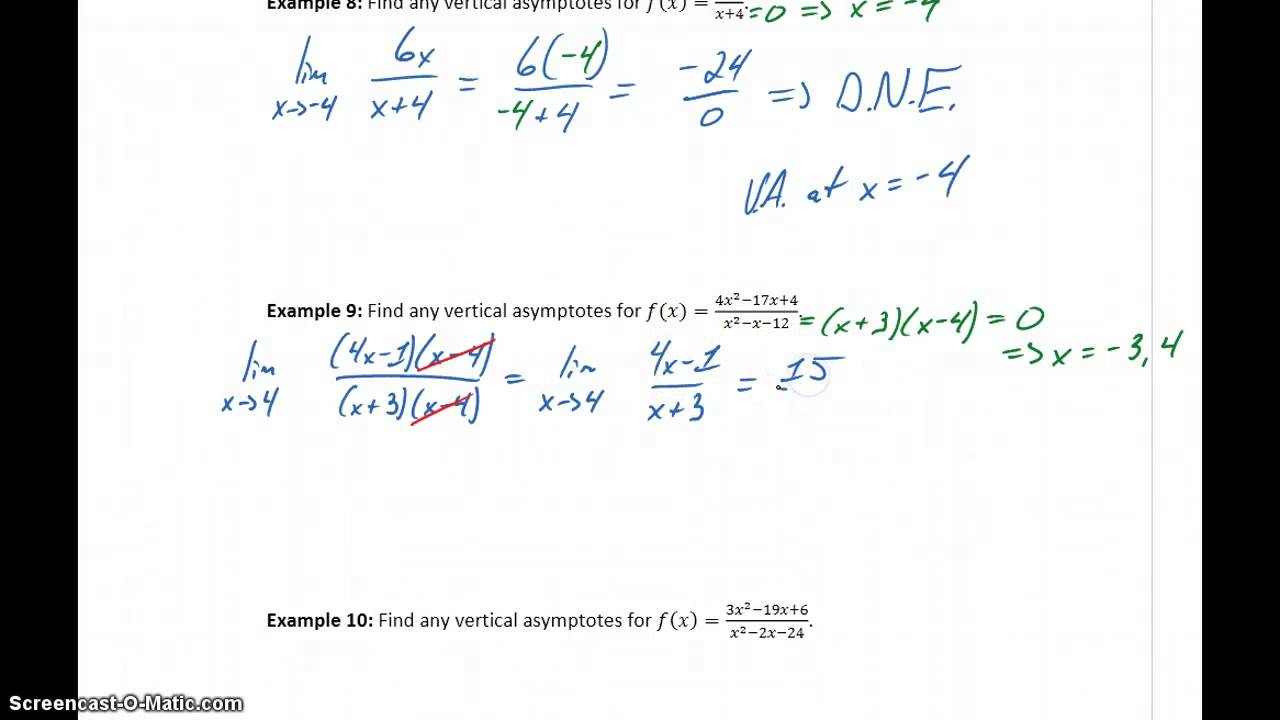 Example 8: Find any vertical asymptotes for f(x) = x+4 = 0 => x = -4
lim x->-4 6x/x+4 = 6(-4)/-4+4 = -24/0 => D.N.E.
V.A. at x = -4
Example 9: Find any vertical asymptotes for f(x) = 4x²−17x+4/x²−x−12. = (x+3)(x-4) = 0
=> x = -3, 4
lim x->4 (4x-1)(x-4)/(x+3)(x-4) = lim x->4 4x-1/x+3 = 15
Example 10: Find any vertical asymptotes for f(x) = 3x²−19x+6/x²−2x−24.
Screencast-O-Matic.com